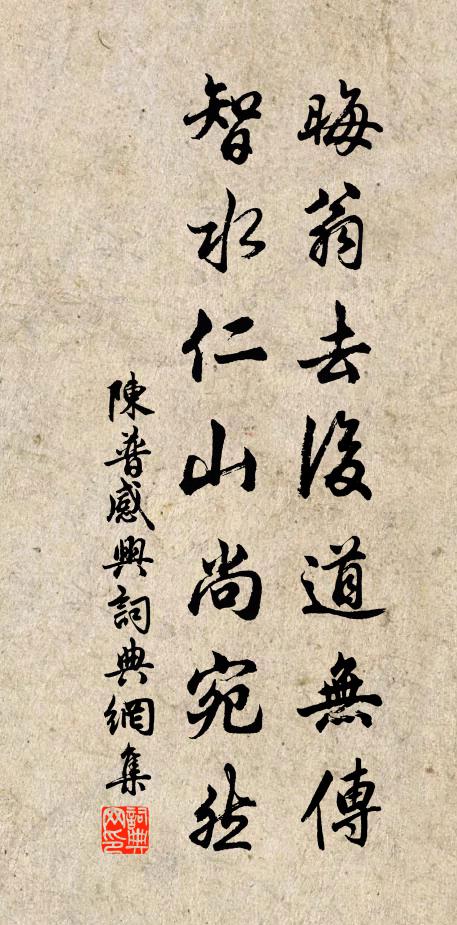 晦翁去後道無傳
智水仁山尚宛然
陳普感興詞典網集
詞典網印